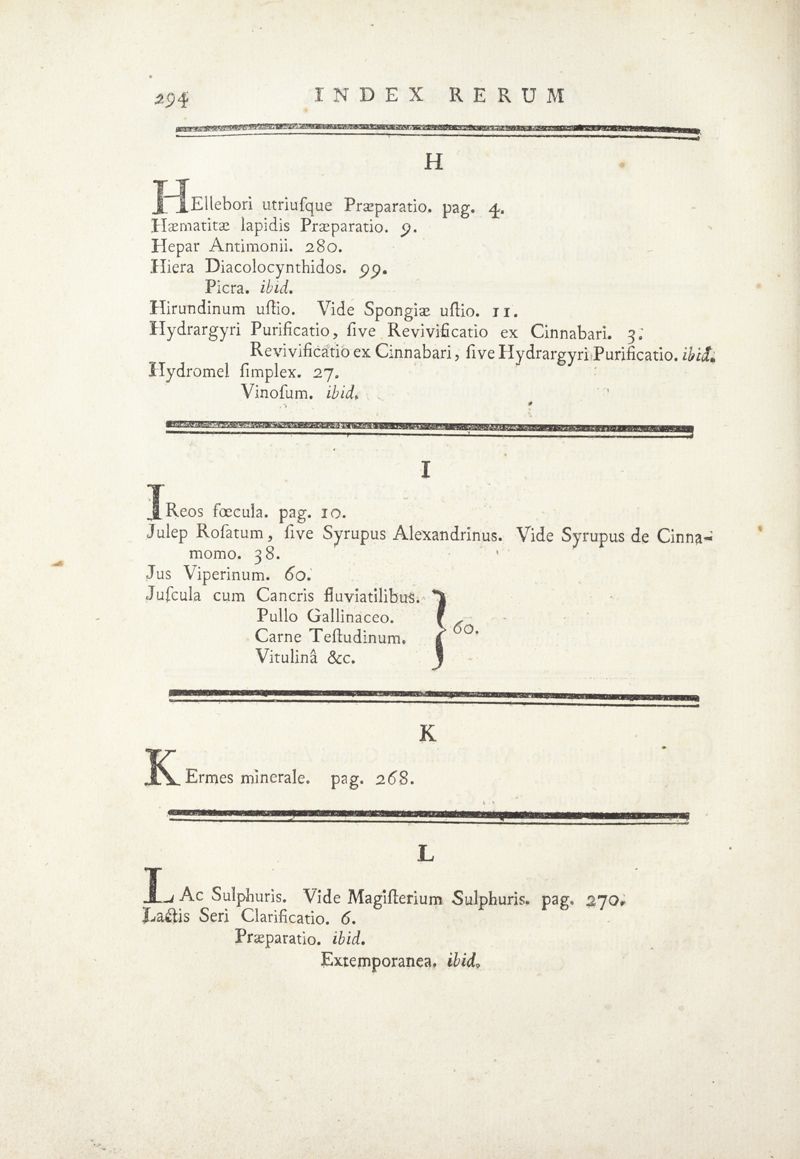 294 INDEX RERUM
H
HEllebori utriuſque Præparatio. pag. 4.
Hæmatitæ lapidis Præparatio. 9.
Hepar Antimonii. 280.
Hiera Diacolocynthidos. 99.
Picra. ibid.
Hirundinum uſtio. Vide Spongiæ uſtio. 11.
Hydrargyri Purificatio, ſive Revivificatio ex Cinnabari. 3.
Revivificatio ex Cinnabari, ſive Hydrargyri Purificatio. ibid.
Hydromel ſimplex. 27.
Vinoſum. ibid.
I
IReos fœcula. pag. 10.
Julep Roſatum, ſive Syrupus Alexandrinus. Vide Syrupus de Cinna-
momo. 38.
Jus Viperinum. 60.
Juſcula cum Cancris fluviatilibus.
Pullo Gallinaceo.
Carne Teſtudinum. } 60.
Vitulinâ &c.
K
KErmes minerale. pag. 268.
L
LAc Sulphuris. Vide Magiſterium Sulphuris. pag. 270.
Lactis Seri Clarificatio. 6.
Præparatio. ibid.
Extemporanea. ibid.